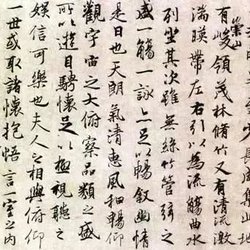 有崇山峻領茂林脩竹又有清流激
湍暎帶左右引以為流觴曲水
列坐其次雖無絲竹管弦之
盛一觴一詠亦足以暢敘幽情
是日也天朗氣清惠風和暢仰
觀宇宙之大俯察品類之盛
所以遊目騁懷足以極視聽之
娛信可樂也夫人之相與俯仰
一世或取諸懷抱悟言一室之內